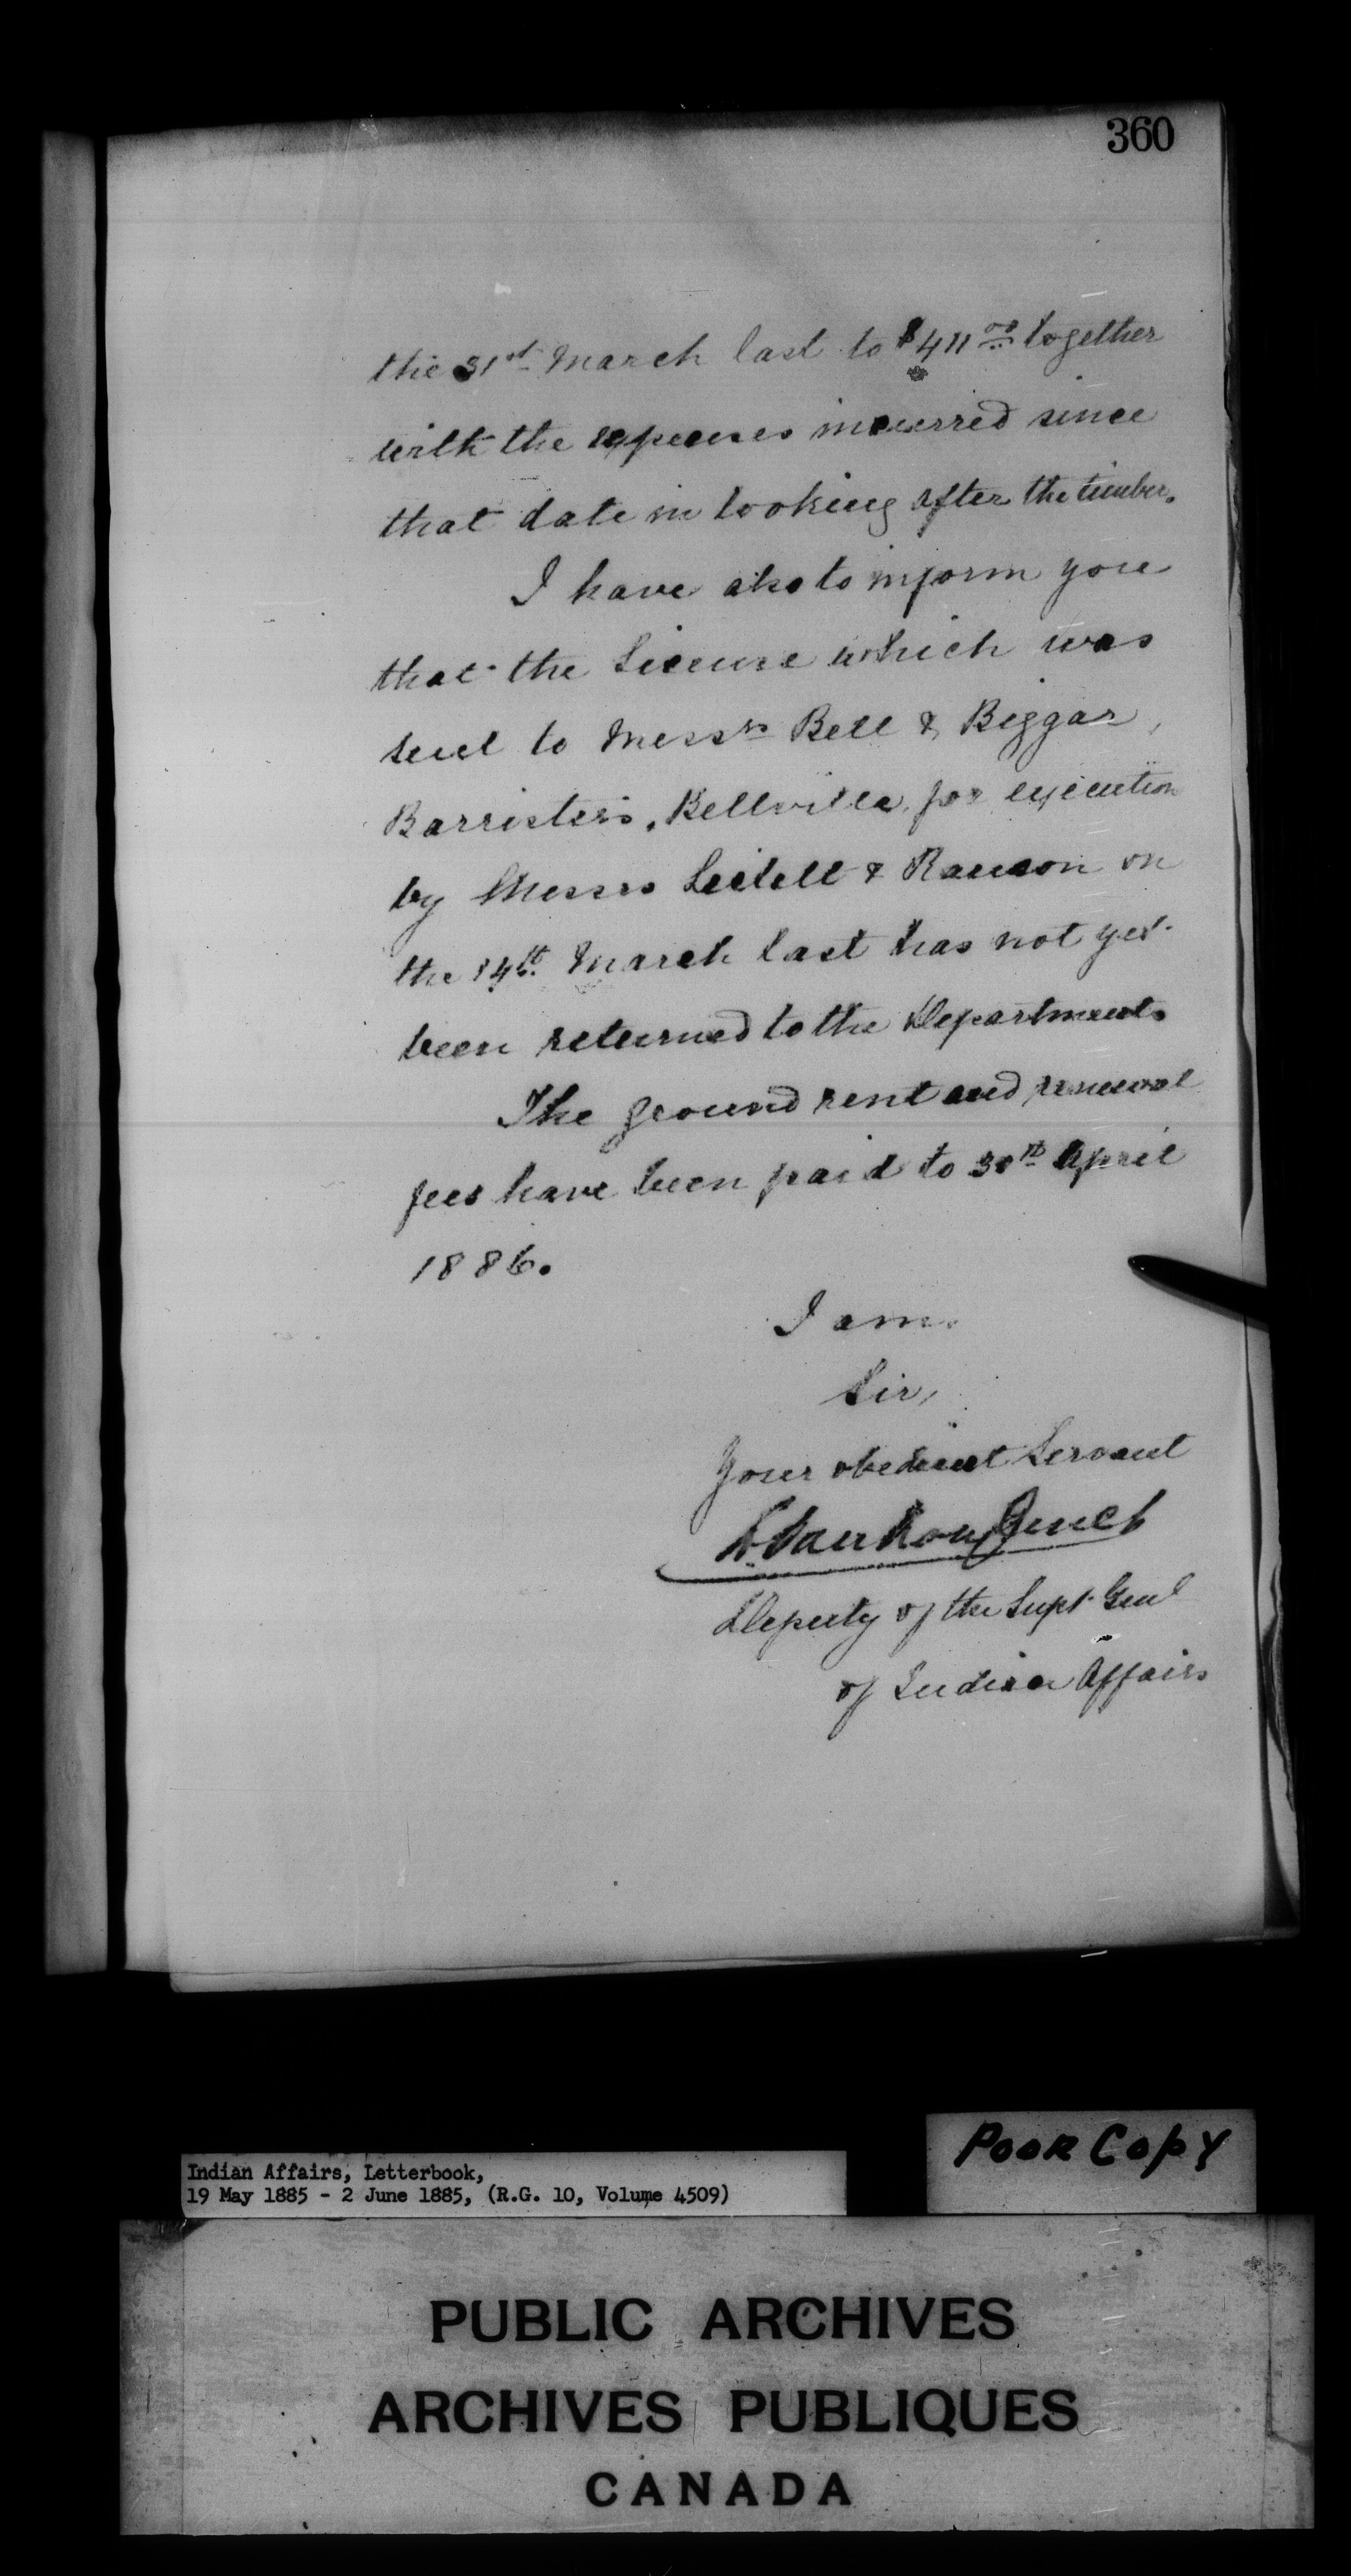 360
the 31st March last to $411.00 together
with the expenses incurred since
that date in looking after the timber.
I have also to inform you
that the License which was
sent to Messrs Bell & Biggar,
Barristers, Bellville, for execution
by Messrs & on
the 14th March last has not yet
been returned to the Department.
The ground rent and renewal
fees have been paid to 30th April
1886.
I am.
Sir,
Your obedient Servant
L. VanKoughnet
Deputy of the Supt. Genl
of Indian Affairs
Poor Copy
Indian Affairs, Letterbook,
19 May 1885 - 2 June 1885, (R.G. 10, Volume 4509)
PUBLIC ARCHIVES
ARCHIVES PUBLIQUES
CANADA